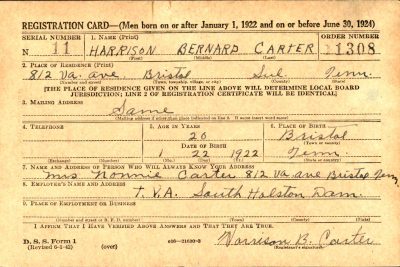 REGISTRATION CARD—(Men born on or after January 1, 1922 and on or before June 30, 1924)
SERIAL NUMBER 1. NAME (Print) ORDER NUMBER
N 11 HARRISON BERNARD CARTER 11308
(First) (Middle) (Last)
2. PLACE OF RESIDENCE (Print)
812 Va. ave. Bristol Sul. Tenn.
(Number and street) (Town, township, village, or city) (County) (State)
[THE PLACE OF RESIDENCE GIVEN ON THE LINE ABOVE WILL DETERMINE LOCAL BOARD
JURISDICTION; LINE 2 OF REGISTRATION CERTIFICATE WILL BE IDENTICAL]
3. MAILING ADDRESS
Same
[Mailing address if other than place indicated on line 2. If same insert word same]
4. TELEPHONE 5. AGE IN YEARS 6. PLACE OF BIRTH
20 Bristol
DATE OF BIRTH (Town or county)
1 22 1922 Tenn
(Exchange) (Number) (Mo.) (Day) (Yr.) (State or country)
7. NAME AND ADDRESS OF PERSON WHO WILL ALWAYS KNOW YOUR ADDRESS
Mrs. Nonnie Carter 812 Va. ave Bristol, Tenn
8. EMPLOYER'S NAME AND ADDRESS
T.V.A. South Holston Dam.
9. PLACE OF EMPLOYMENT OR BUSINESS
(Number and street or R. F. D. number) (Town) (County) (State)
I AFFIRM THAT I HAVE VERIFIED ABOVE ANSWERS AND THAT THEY ARE TRUE.
D. S. S. Form 1
(Revised 6-1-42) (over) 16—21630-2 Harrison B. Carter
(Registrant's signature)